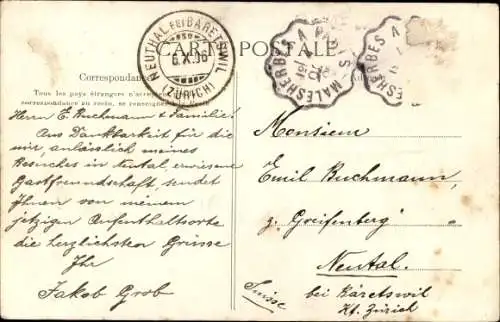 CARTE POSTALE
NEUTHAL bei BARETSWIL
6.X.06
(ZÜRICH)
MALESHERBES A PARIS
MALESHERBES A
Correspondance
Tous les pays étrangers n'acceptent
correspondance au recto, se renseigner à la Poste
Herrn E. Buchmann & Familie!
Aus Dankbarkeit für die
mir anlässlich meines
Besuches in Neutal erwiesene
Gastfreundschaft sendet
Ihnen von meinem
jetzigen Aufenthaltsorte
die herzlichsten Grüsse
Ihr
Jakob Grob
Monsieur
Emil Buchmann,
z. Greifenberg
Neutal.
bei Bäretswil
Kt. Zürich
Suisse